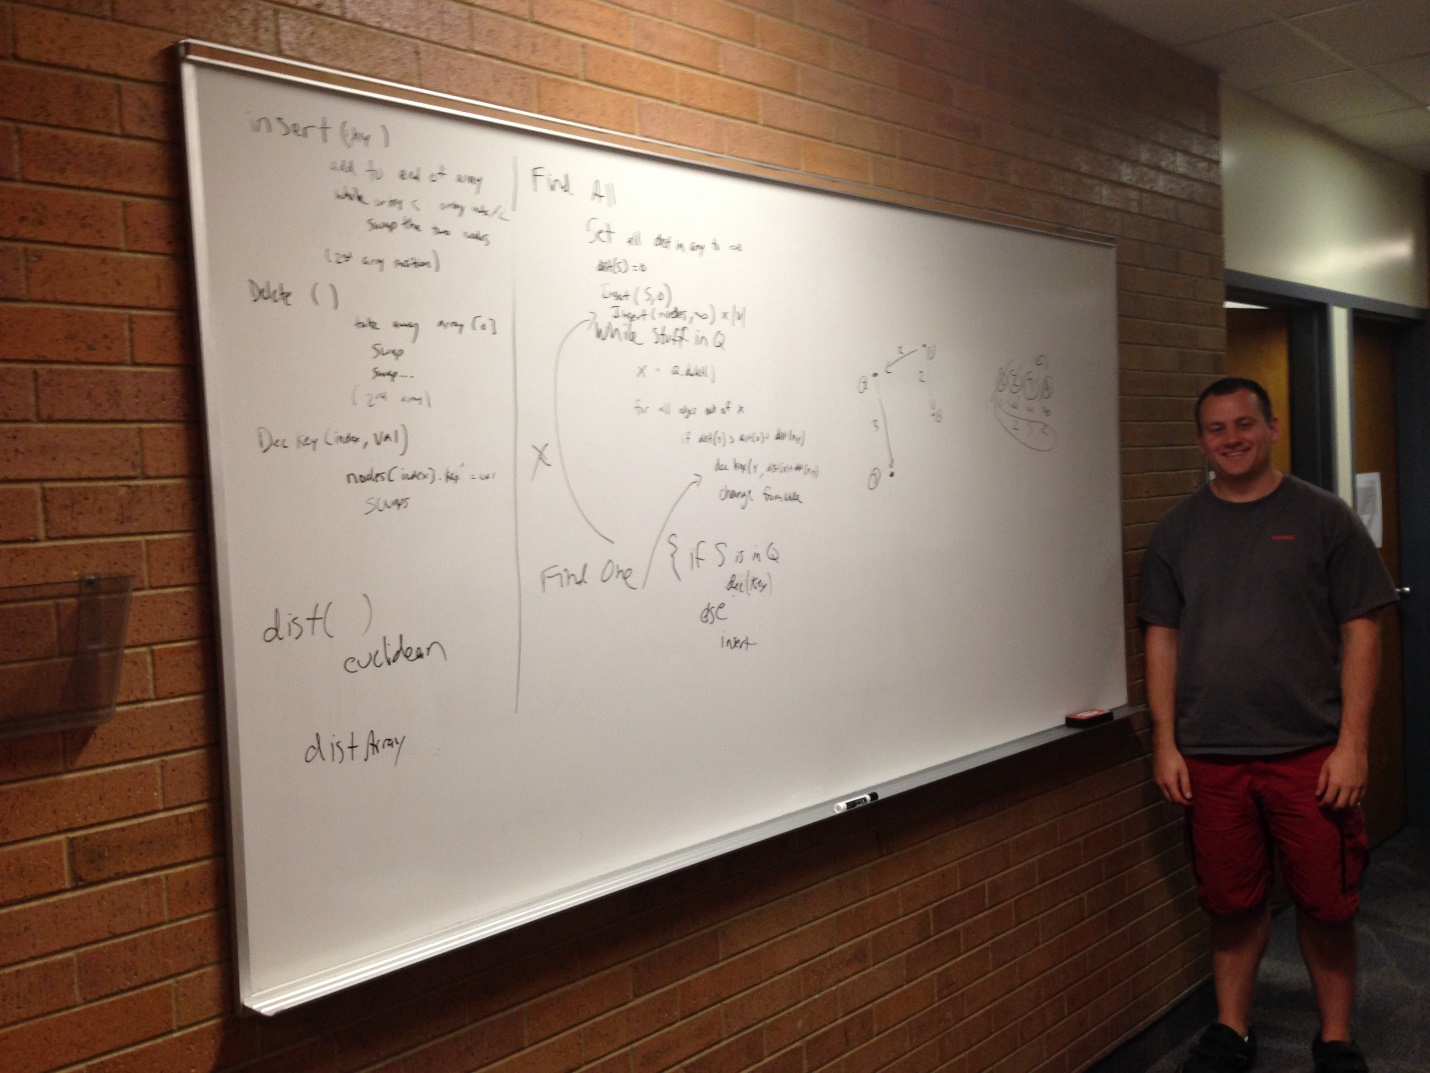 insert (key)
add to end of array
while array < array
swap the two nodes
(2nd array position)
Delete ()
take away array [0]
Swap
Swap...
(2nd array)
Dec Key (index, val)
nodes(index).key = val
Swaps
dist( )
euclidean
distArray
Find All
Set all dist in any to ∞
dist(s) = 0
Insert (S, 0)
Insert (nodes, ∞) x |V|
While Stuff in Q
X = Q.delete()
for all edges out of x
if dist(y) > dist(x) + dist(x,y)
dec key(y, dist(x)+dist(x,y))
change
X
Find One
{ if S is in Q
dec(key)
else
insert
2
2
5